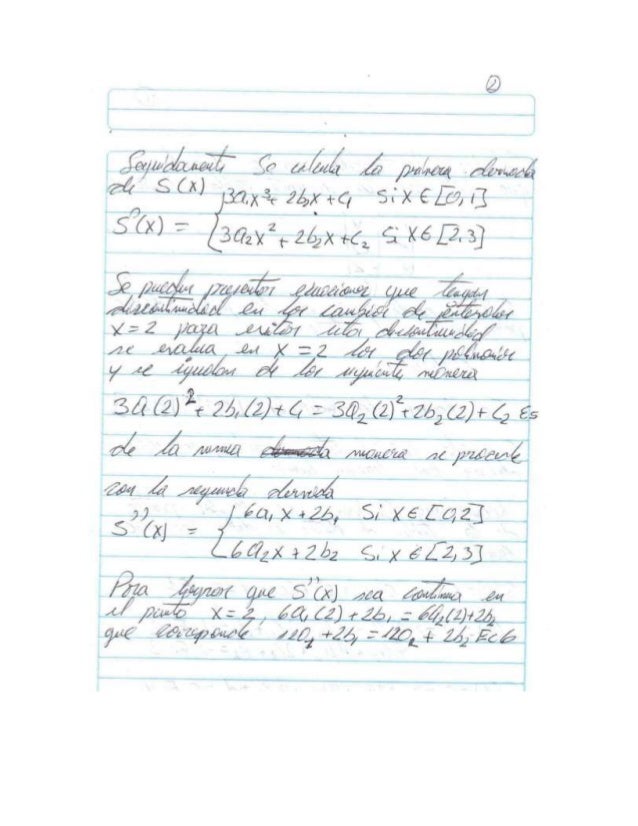 ②
Seguidamente Se calcula la primera derivada
de S(x)
S'(x) = { 3a₁x² + 2b₁x + c₁ Si x ∈ [0,1]
3a₂x² + 2b₂x + c₂ Si x ∈ [2,3]
Se pueden presentar ecuaciones que tengan
discontinuidad en los cambios de intervalos
x = 2 para evitar esta discontinuidad
se evalua en x = 2 los dos polinomios
y se igualan de la siguiente manera
3a(2)² + 2b₁(2) + c₁ = 3a₂(2)² + 2b₂(2) + c₂ Es
de la misma manera se procede
con la segunda derivada
S''(x) = { 6a₁x + 2b₁ Si x ∈ [0,2]
6a₂x + 2b₂ Si x ∈ [2,3]
Para lograr que S''(x) sea continua en
el punto x = 2, 6a₁(2) + 2b₁ = 6a₂(2) + 2b₂
que corresponde 12a₁ + 2b₁ = 12a₂ + 2b₂ Ec 6